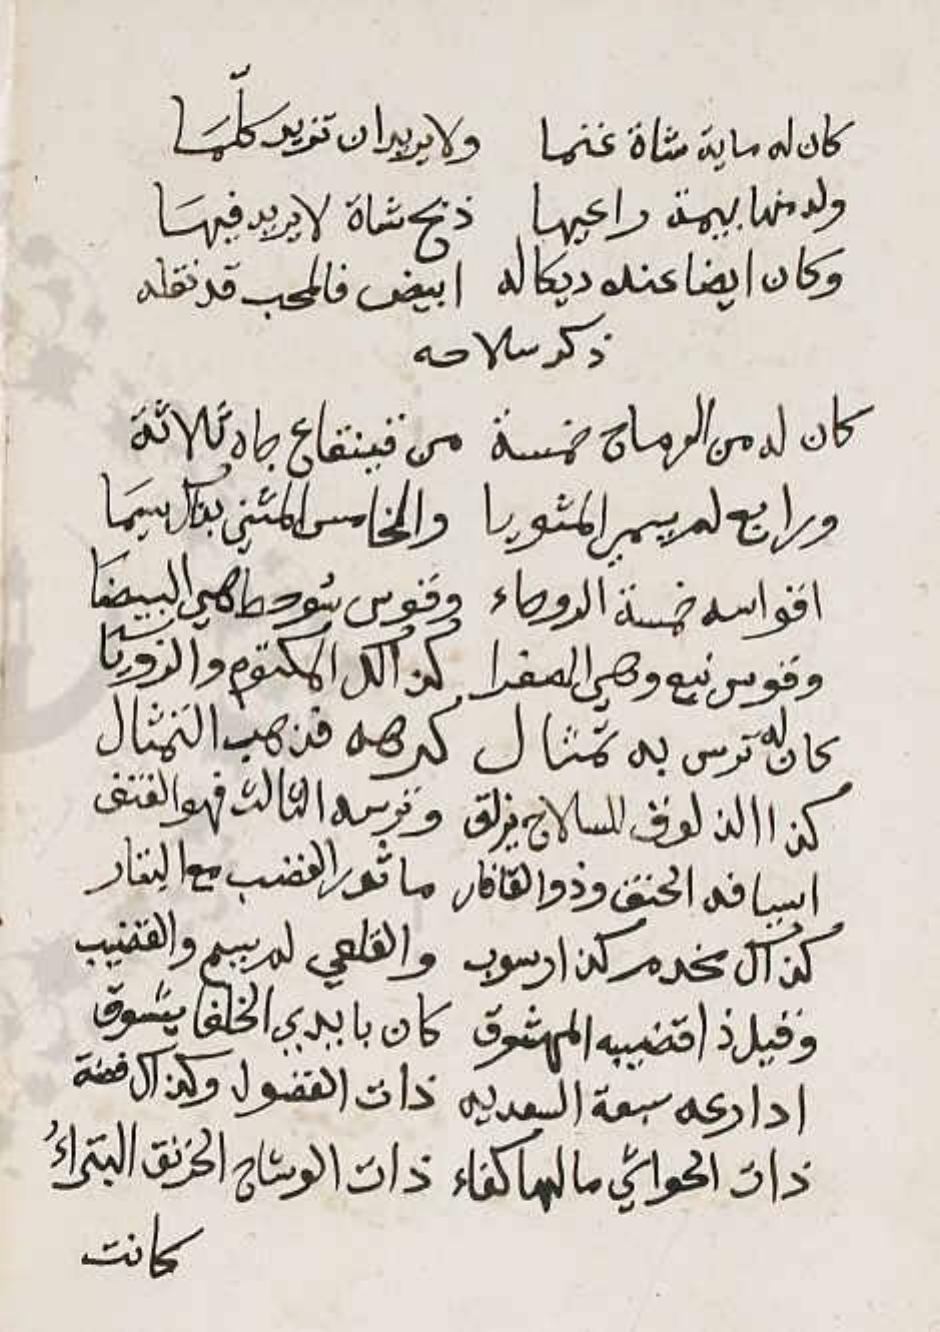 كان له ماية شاة غنما ولا يريد ان تزيد كلّما
ولد منها بهيمة راعيها ذبح شاة لا يريد فيها
وكان ايضا عنده ديكا له ابيض فالمحب قد نقله
ذكر سلاحه
كان له من الرماح خمسة من قينقاع جاه ثلاثة
ورابع لمريسمي المثويا والخامس المثني بذاك سيما
اقواسه خمسة الروحاء وقوس شوحط هي البيضا
وقوس نبع وهي الصفرا كذاك المكتوم والزورا
كان له ترس به تمثال كرهه فذهب التمثال
كذا الزلوق السلاح يزلق وترسه الثالث فهو الفتق
اسيافه الحنف وذو الفقار ماثور العضب مع البتار
كذاك مخدم كذا رسوب والقلعي لم والقضيب
وقيل ذا قضيبه الممشوق كان بايدي الخلفا يشوق
ادارعه سبعة السعديه ذات الفضول وكذاك فضة
ذات الحواشي مالها كفاء ذات الوشاح الخرنق البتراءُ
كانت